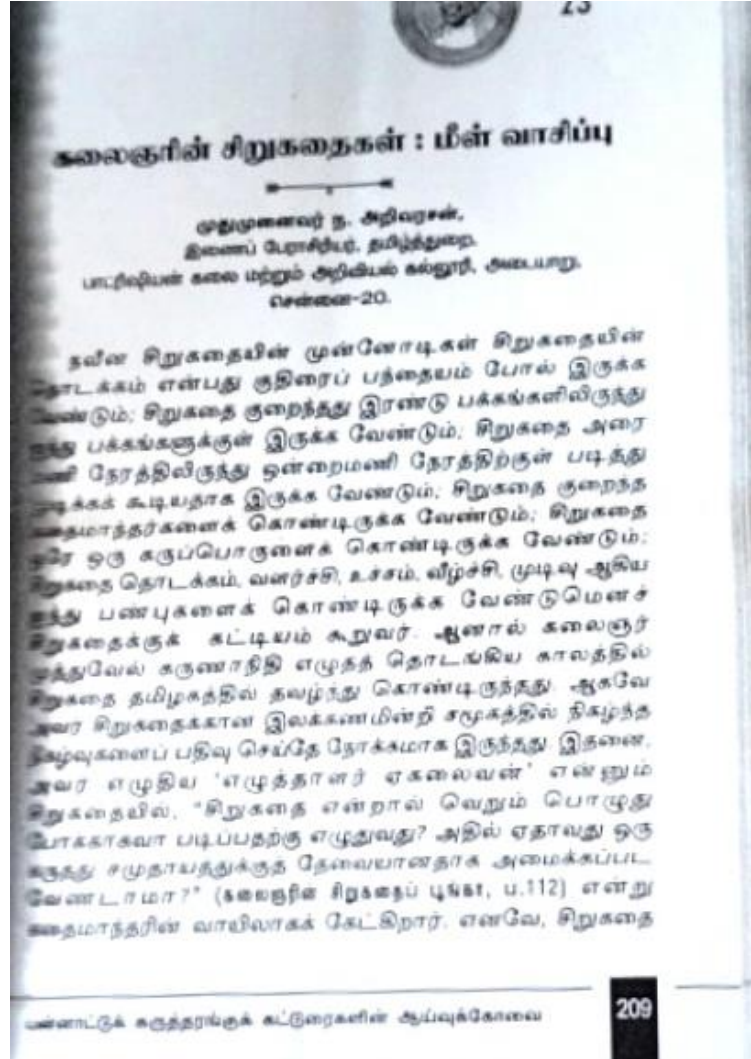 23
கலைஞரின் சிறுகதைகள் : மீள் வாசிப்பு
முதுமுனைவர் ந. அறிவரசன்,
இணைப் பேராசிரியர், தமிழ்த்துறை,
பாட்ரிஷியன் கலை மற்றும் அறிவியல் கல்லூரி, அடையாறு,
சென்னை-20.
நவீன சிறுகதையின் முன்னோடிகள் சிறுகதையின்
தொடக்கம் என்பது குதிரைப் பந்தையம் போல் இருக்க
வேண்டும்; சிறுகதை குறைந்தது இரண்டு பக்கங்களிலிருந்து
ஐந்து பக்கங்களுக்குள் இருக்க வேண்டும்; சிறுகதை அரை
மணி நேரத்திலிருந்து ஒன்றைமணி நேரத்திற்குள் படித்து
முடிக்கக் கூடியதாக இருக்க வேண்டும்; சிறுகதை குறைந்த
கதைமாந்தர்களைக் கொண்டிருக்க வேண்டும்; சிறுகதை
ஒரே ஒரு கருப்பொருளைக் கொண்டிருக்க வேண்டும்;
சிறுகதை தொடக்கம், வளர்ச்சி, உச்சம், வீழ்ச்சி, முடிவு ஆகிய
ஐந்து பண்புகளைக் கொண்டிருக்க வேண்டுமெனச்
சிறுகதைக்குக் கட்டியம் கூறுவர். ஆனால் கலைஞர்
முத்துவேல் கருணாநிதி எழுதத் தொடங்கிய காலத்தில்
சிறுகதை தமிழகத்தில் தவழ்ந்து கொண்டிருந்தது. ஆகவே
அவர் சிறுகதைக்கான இலக்கணமின்றி சமூகத்தில் நிகழ்ந்த
நிகழ்வுகளைப் பதிவு செய்தே நோக்கமாக இருந்தது. இதனை,
அவர் எழுதிய 'எழுத்தாளர் ஏகலைவன்' என்னும்
சிறுகதையில், "சிறுகதை என்றால் வெறும் பொழுது
போக்காகவா படிப்பதற்கு எழுதுவது? அதில் ஏதாவது ஒரு
கருத்து சமுதாயத்துக்குத் தேவையானதாக அமைக்கப்பட
வேண்டாமா?" (கலைஞரின் சிறுகதைப் பூங்கா, ப.112) என்று
கதைமாந்தரின் வாயிலாகக் கேட்கிறார். எனவே, சிறுகதை
பன்னாட்டுக் கருத்தரங்குக் கட்டுரைகளின் ஆய்வுக்கோவை
209